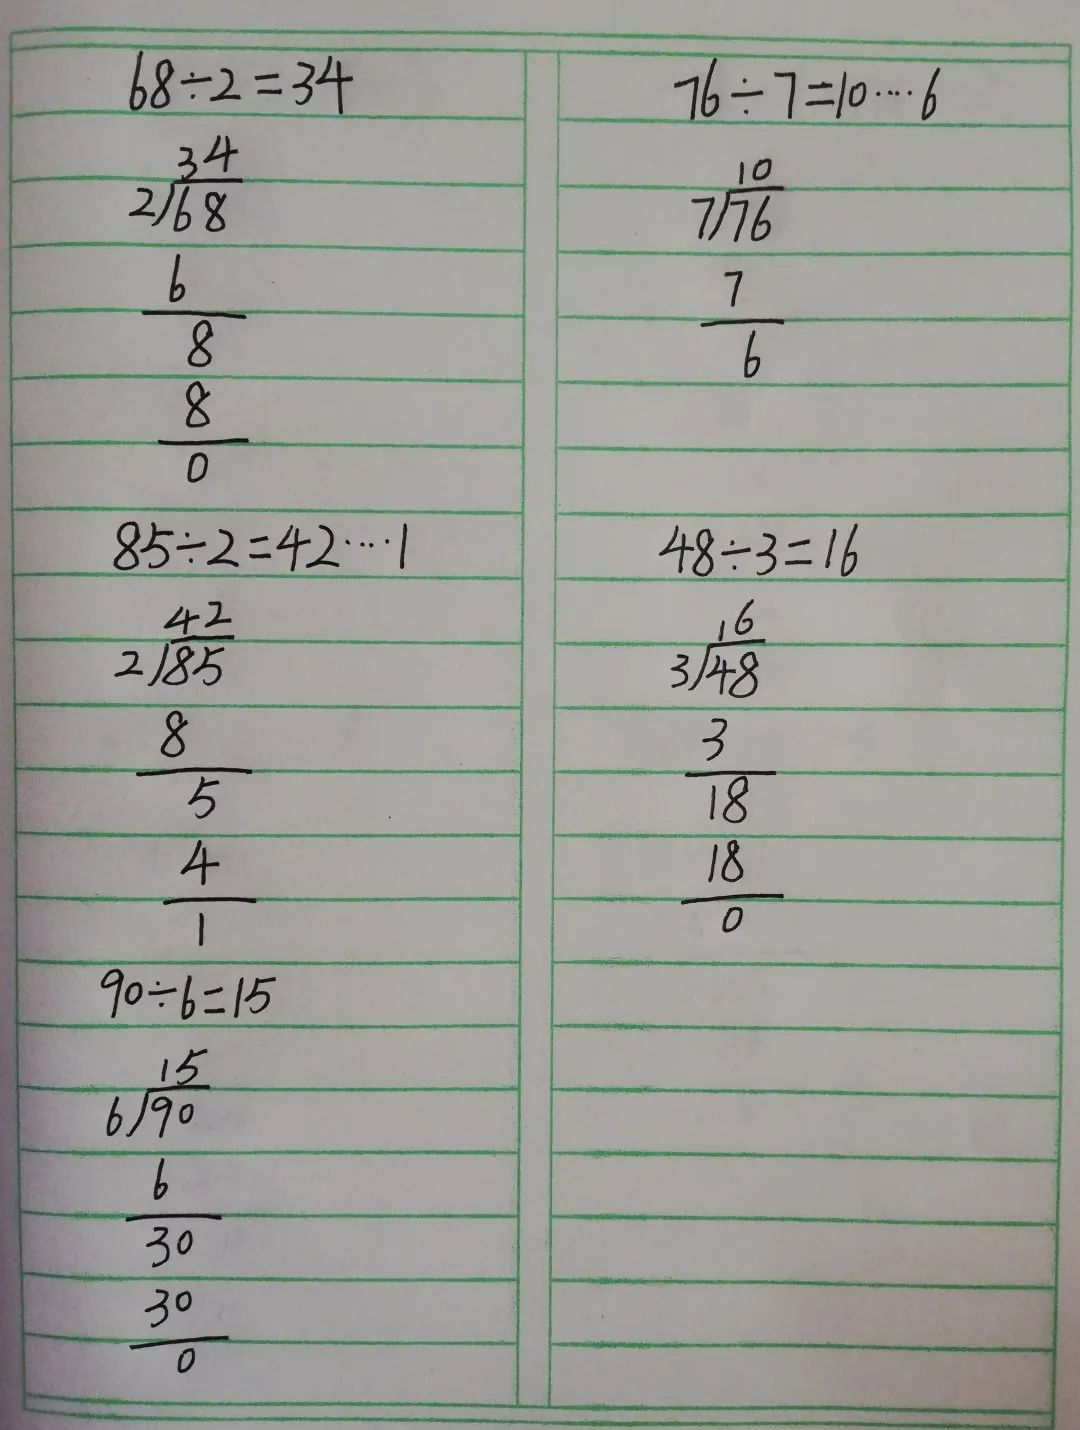 68÷2=34
34
2/68
6
8
8
0
76÷7=10····6
10
7/76
7
6
85÷2=42····1
42
2/85
8
5
4
1
48÷3=16
16
3/48
3
18
18
0
90÷6=15
15
6/90
6
30
30
0